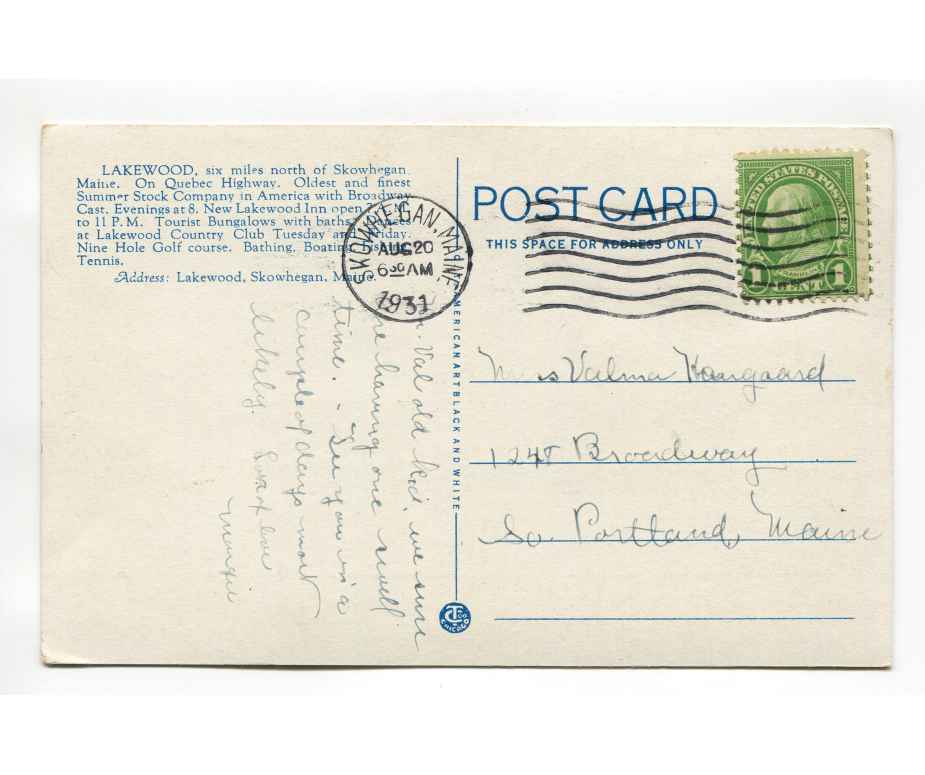 LAKEWOOD, six miles north of Skowhegan,
Maine. On Quebec Highway. Oldest and finest
Summer Stock Company in America with Broadway
Cast. Evenings at 8. New Lakewood Inn open
to 11 P.M. Tourist Bungalows with baths.
at Lakewood Country Club Tuesday and Friday.
Nine Hole Golf course. Bathing, Boating, Fishing,
Tennis.
Address: Lakewood, Skowhegan, Maine.
SKOWHEGAN, MAINE
AUG 20
6 30 AM
1931
POST CARD
THIS SPACE FOR ADDRESS ONLY
UNITED STATES POSTAGE
FRANKLIN
1 CENT 1
Val old kid, we sure
are having one swell
time. - See you in a
couple of days most
likely. Loves love
Margie
AMERICAN ART BLACK AND WHITE
Miss Valma Haargaard
1248 Broadway
So. Portland, Maine
CT CO
CHICAGO